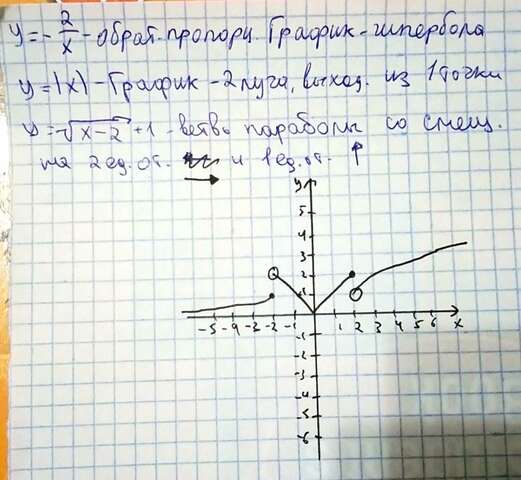 y=-2/x - обрат. пропорц. График - гипербола
y=|x| - График - 2 луча, выход. из 1 точки
y=√x-2+1 - ветвь параболы со смещ.
на 2 ед. от. → и 1 ед. от. ↑
y
5
4
3
2
1
-5 -4 -3 -2 -1 1 2 3 4 5 6 x
-1
-2
-3
-4
-5
-6